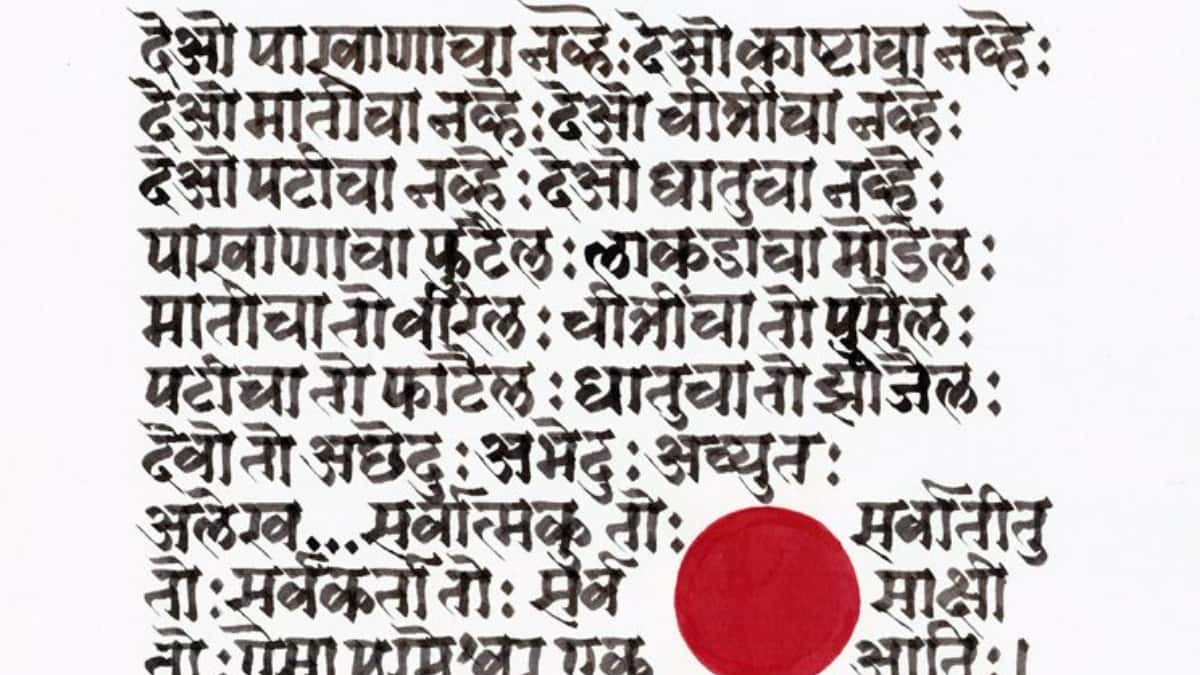 देओ पाखाणाचा नव्हे: देओ काष्टाचा नव्हे:
देओ मातीचा नव्हे: देओ चीत्रींचा नव्हे:
देओ पटीचा नव्हे: देओ धातुचा नव्हे:
पाखाणाचा फुटैल: लाकडाचा मोडैल:
मातीचा तो वीरैल: चीत्रींचा तो पुसैल:
पटीचा तो फाटैल: धातुचा तो झीजैल:
देवो तो अछेदु: अभेदु: अच्युत:
अलेख... सर्वात्मकु तो: सर्वातीतु
तो: सर्वकर्ता तो: सर्व साक्षी
तो: ऐसा एक आति:।